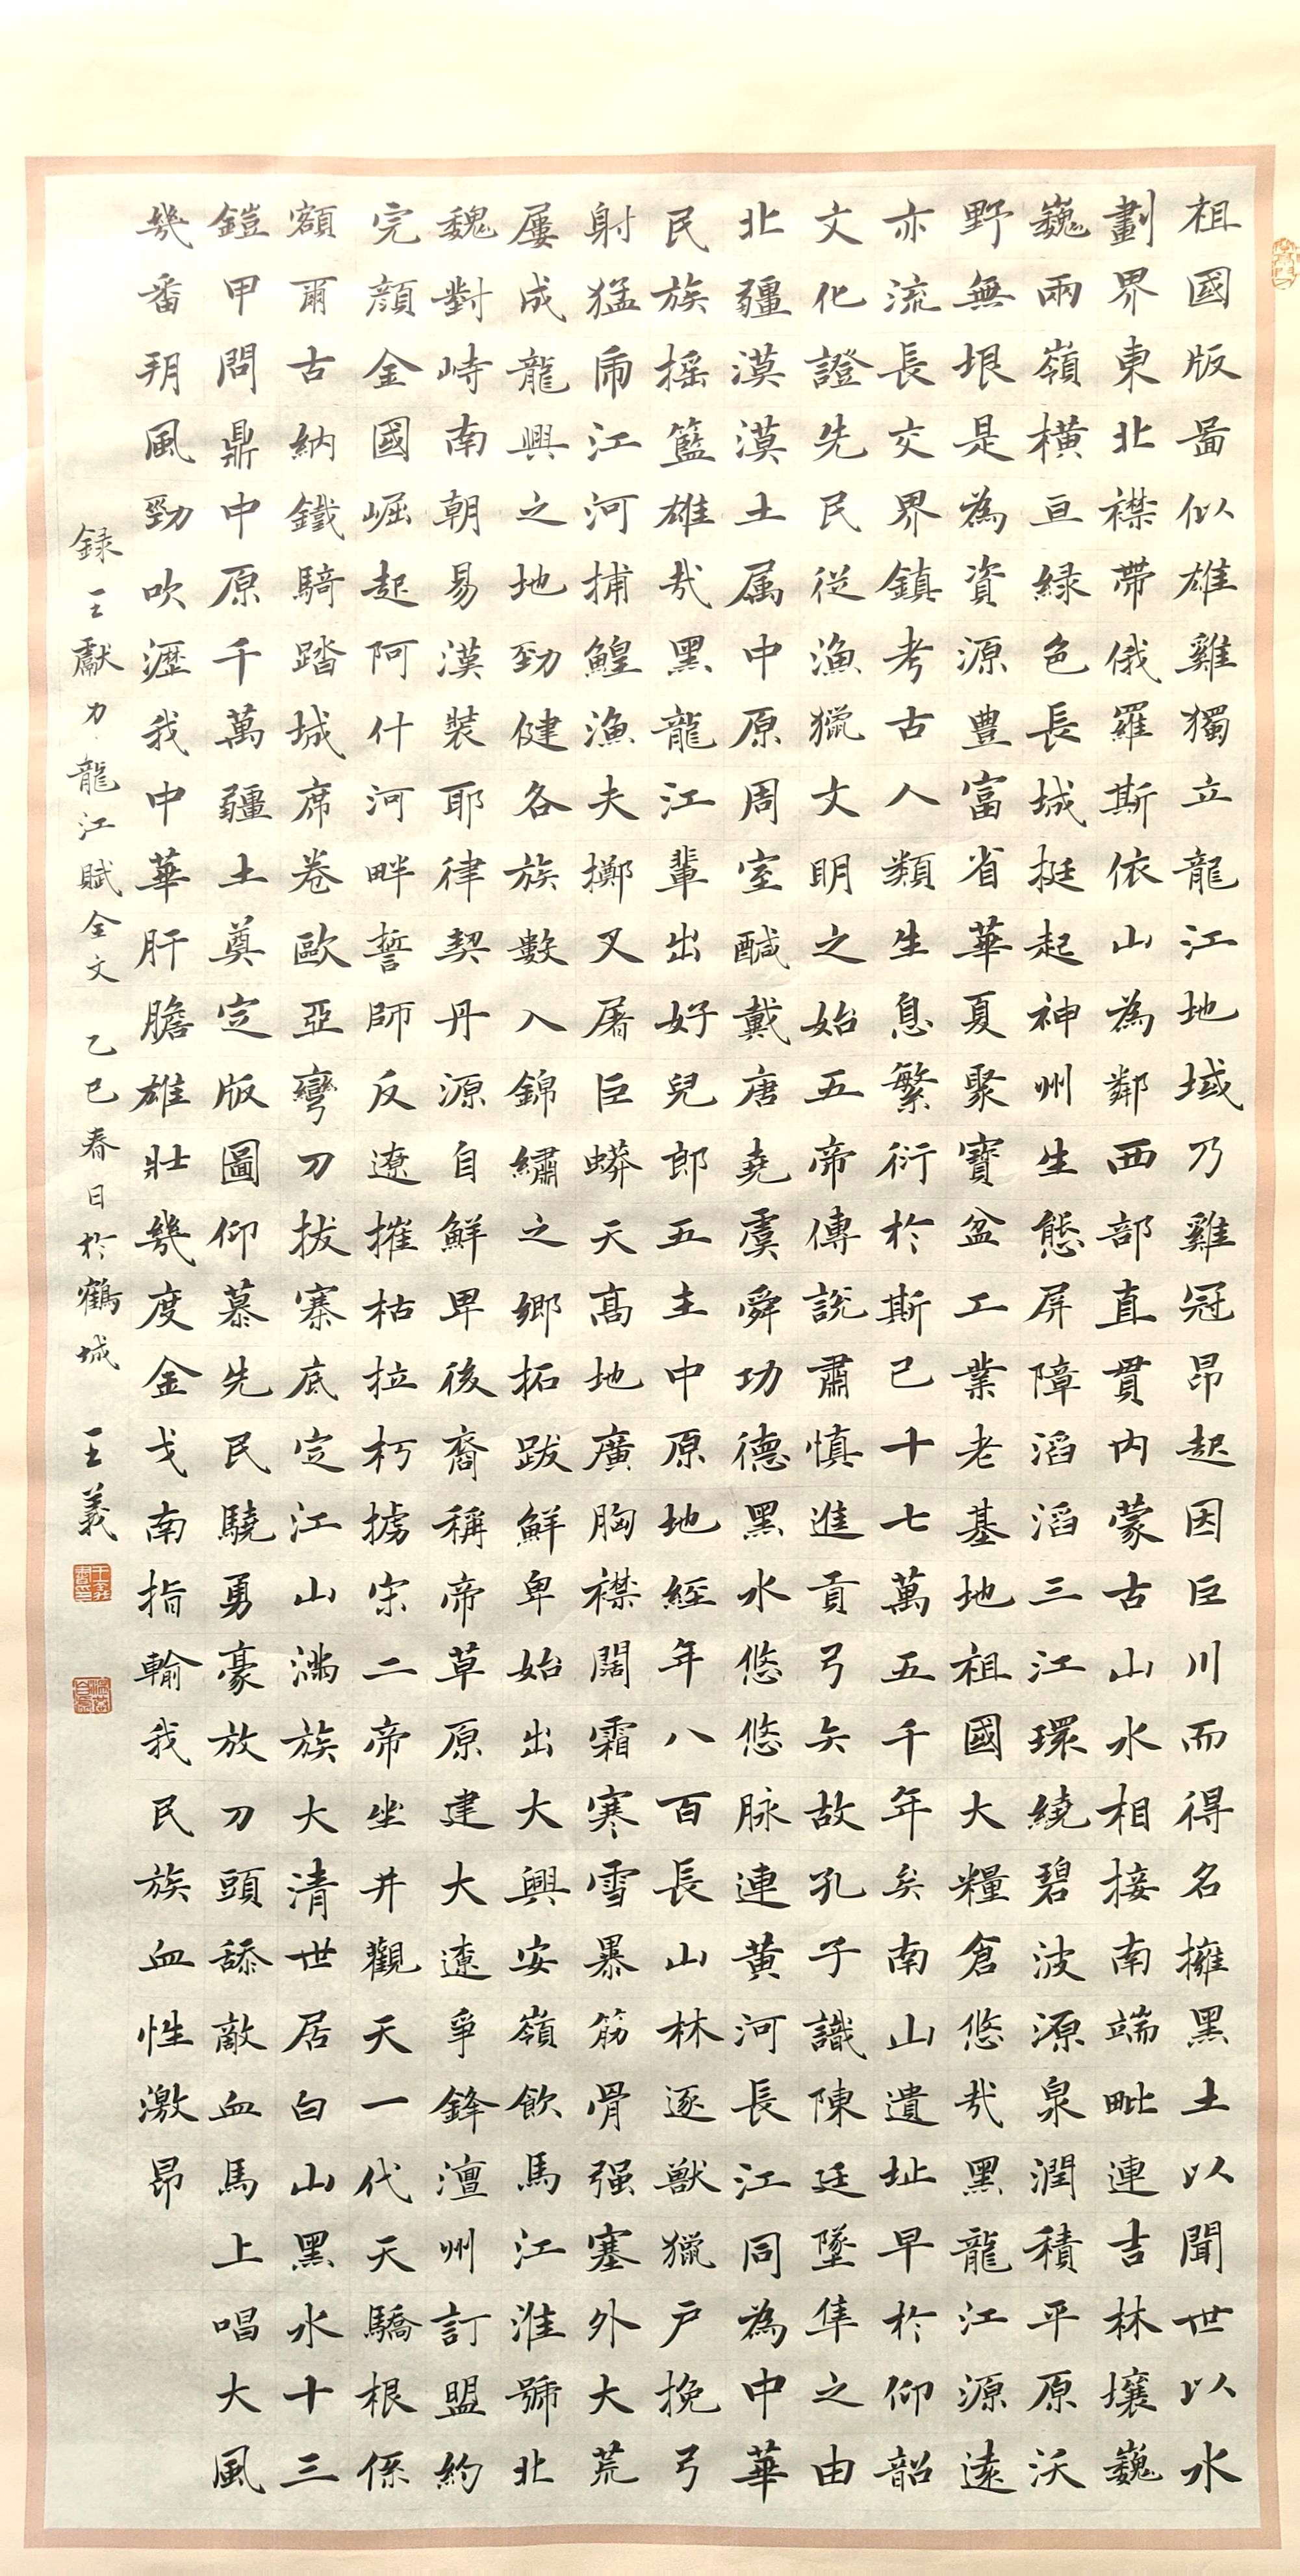 祖國版圖似雄雞獨立龍江地域乃雞冠昂起因巨川而得名擁黑土以聞世以水
劃界東北襟帶俄羅斯依山為鄰西部直貫内蒙古山水相接南端毗連吉林壤巍
巍兩嶺橫亘緑色長城挺起神州生態屏障滔滔三江環繞碧波源泉潤積平原沃
野無垠是為資源豊富省華夏聚寶盆工業老基地祖國大糧倉悠哉黑龍江源遠
亦流長交界鎮考古人類生息繁衍於斯已十七萬五千年矣南山遺址早於仰韶
文化證先民從漁獵文明之始五帝傳說肅慎進貢弓矢故孔子識陳廷墜隼之由
北疆漠漠土属中原周室醎戴唐堯虞舜功德黑水悠悠脉連黄河長江同為中華
民族摇籃雄哉黑龍江輩出好兒郎五主中原地經年八百長山林逐獸獵戶挽弓
射猛虎江河捕鰉漁夫擲叉屠巨蟒天高地廣胸襟闊霜寒雪暴筋骨强塞外大荒
屢成龍興之地勁健各族數入錦繡之鄉拓跋鮮卑始出大興安嶺飲馬江淮號北
魏對峙南朝易漢裝耶律契丹源自鮮卑後裔稱帝草原建大遼爭鋒澶州訂盟約
完顏金國崛起阿什河畔誓師反遼摧枯拉朽擄宋二帝坐井觀天一代天驕根係
額爾古納鐵騎踏城席卷歐亞彎刀拔寨底定江山滿族大清世居白山黑水十三
鎧甲問鼎中原千萬疆土奠定版圖仰慕先民驍勇豪放刀頭舔敵血馬上唱大風
幾番朔風勁吹瀝我中華肝膽雄壯幾度金戈南指輸我民族血性激昂
録王獻力龍江賦全文 乙巳春日於鶴城 王義